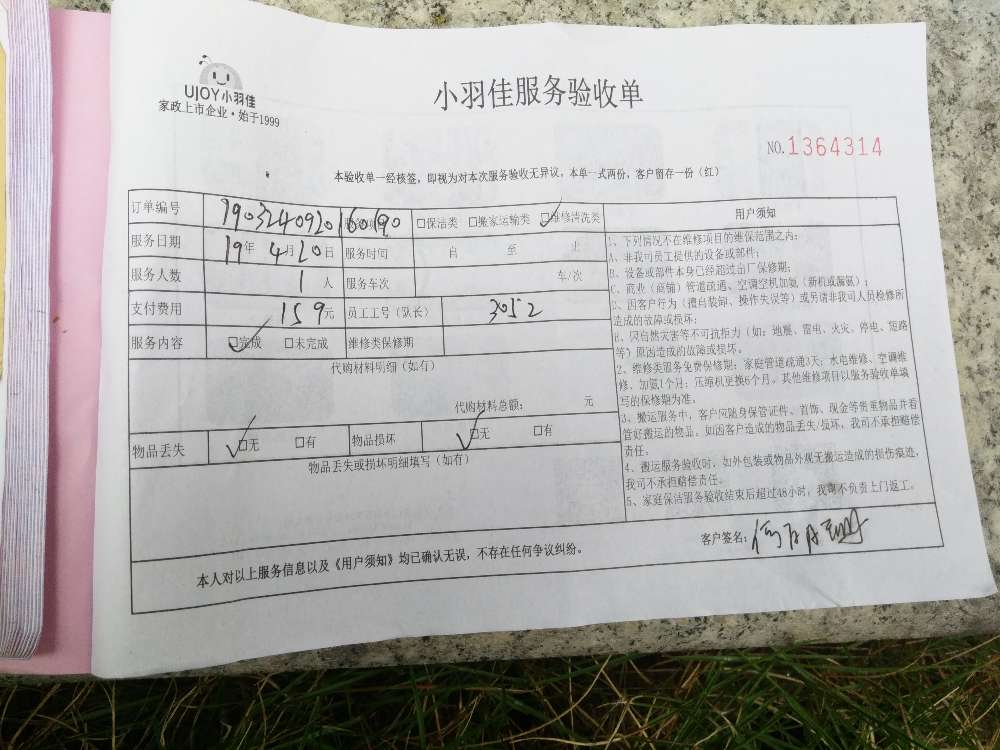 UJOY小羽佳
家政上市企业·始于1999
小羽佳服务验收单
NO.1364314
本验收单一经核签，即视为对本次服务验收无异议，本单一式两份，客户留存一份（红）
订单编号 1903240920160190 □保洁类 □搬家运输类 □维修清洗类
服务日期 19年4月20日 服务时间 自 至 止
服务人数 1人 服务车次 车/次
支付费用 159元 员工工号（队长） 3052
服务内容 □完成 □未完成 维修类保修期
代购材料明细（如有）
代购材料总额： 元
物品丢失 □无 □有 物品损坏 □无 □有
物品丢失或损坏明细填写（如有）
用户须知
1、下列情况不在维修项目的维保范围之内：
A、非我司员工提供的设备或部件；
B、设备或部件本身已经超过出厂保修期；
C、商业（商铺）管道疏通、空调空机加氨（新机或漏氨）；
D、因客户行为（擅自装卸、操作失误等）或另请非我司人员检修所
造成的故障或损坏；
E、因自然灾害等不可抗拒力（如：地震、雷电、火灾、停电、短路
等）原因造成的故障或损坏。
2、维修类服务免费保修期：家庭管道疏通3天；水电维修、空调维
修、加氨1个月；压缩机更换6个月，其他维修项目以服务验收单填
写的保修期为准。
3、搬运服务中，客户应随身保管证件、首饰、现金等贵重物品并看
管好搬运的物品。如因客户造成的物品丢失/损坏，我司不承担赔偿
责任。
4、搬运服务验收时，如外包装或物品外观无搬运造成的损伤痕迹，
我司不承担赔偿责任。
5、家庭保洁服务验收结束后超过48小时，我司不负责上门返工。
客户签名：
本人对以上服务信息以及《用户须知》均已确认无误，不存在任何争议纠纷。